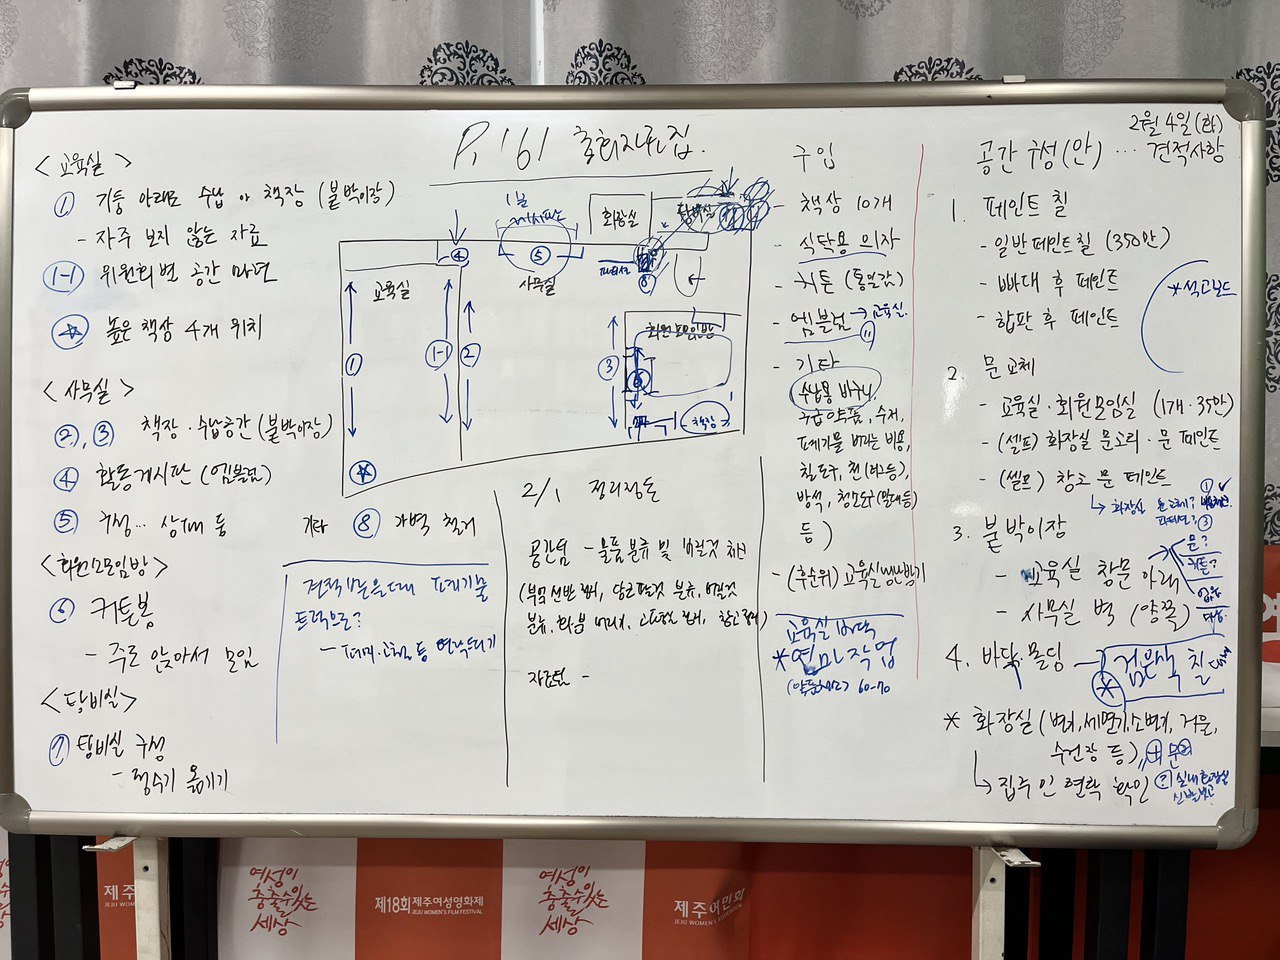 P. 161 총회자료집
2월 4일(화)
<교육실>
① 기둥 아래로 수납 or 책장 (붙박이장)
- 자주 보지 않는 자료
1-1 위원회별 공간 마련
☆ 높은 책상 4개 위치
<사무실>
②, ③ 책장·수납공간 (붙박이장)
④ 활동게시판 (엠보싱)
⑤ 구성... 상패 등
<회원소모임방>
⑥ 커튼봉
- 주로 앉아서 모임
<탕비실>
⑦ 탕비실 구성
- 정수기 옮기기
게시판
④
⑤
화장실
탕비실
교육실
사무실
회원모임방
①
1-1
②
③
⑥
책장
☆
기타 ⑧ 가벽 철거
견적 받을 때 폐기물
트럭으로?
2/1 정리정돈
공간팀 - 물품 분류 및 버릴것 체크
자료팀 -
구입
- 책상 10개
- 식탁용 의자
- 커튼 (통일감)
- 엠블럼 → 교육실
- 기타
수납용 바구니,
구급약품, 수저,
폐기물 버리는 비용,
방석, 청소도구(밀대 등)
등)
- (후순위) 교육실 냉난방기
교육실 바닥
*연마작업
60-70
공간 구성(안) ... 견적사항
1. 페인트 칠
- 일반페인트칠 (350만)
- 빠대 후 페인트
- 합판 후 페인트
*석고보드
2. 문 교체
- 교육실·회원모임실 (1개·35만)
- (셀프) 화장실 문소리·문 페인트
- (셀프) 창고 문 페인트
↳ 화장실 문 교체?
3. 붙박이장
- 교육실 창문 아래
- 사무실 벽 (양쪽)
문?
커튼?
4. 바닥·몰딩 → 검은색 칠
* 화장실 (변기, 세면기, 소변기, 거울,
수건장 등) + 문
↳ 집주인 연락 확인
② 실내화장실
여성이
춤출 수 있는
세상
제18회 제주여성영화제
JEJU WOMEN'S FILM FESTIVAL
여성이
춤출 수 있는
세상
제주여민회
JEJU WOMEN'S ASSOCIATION